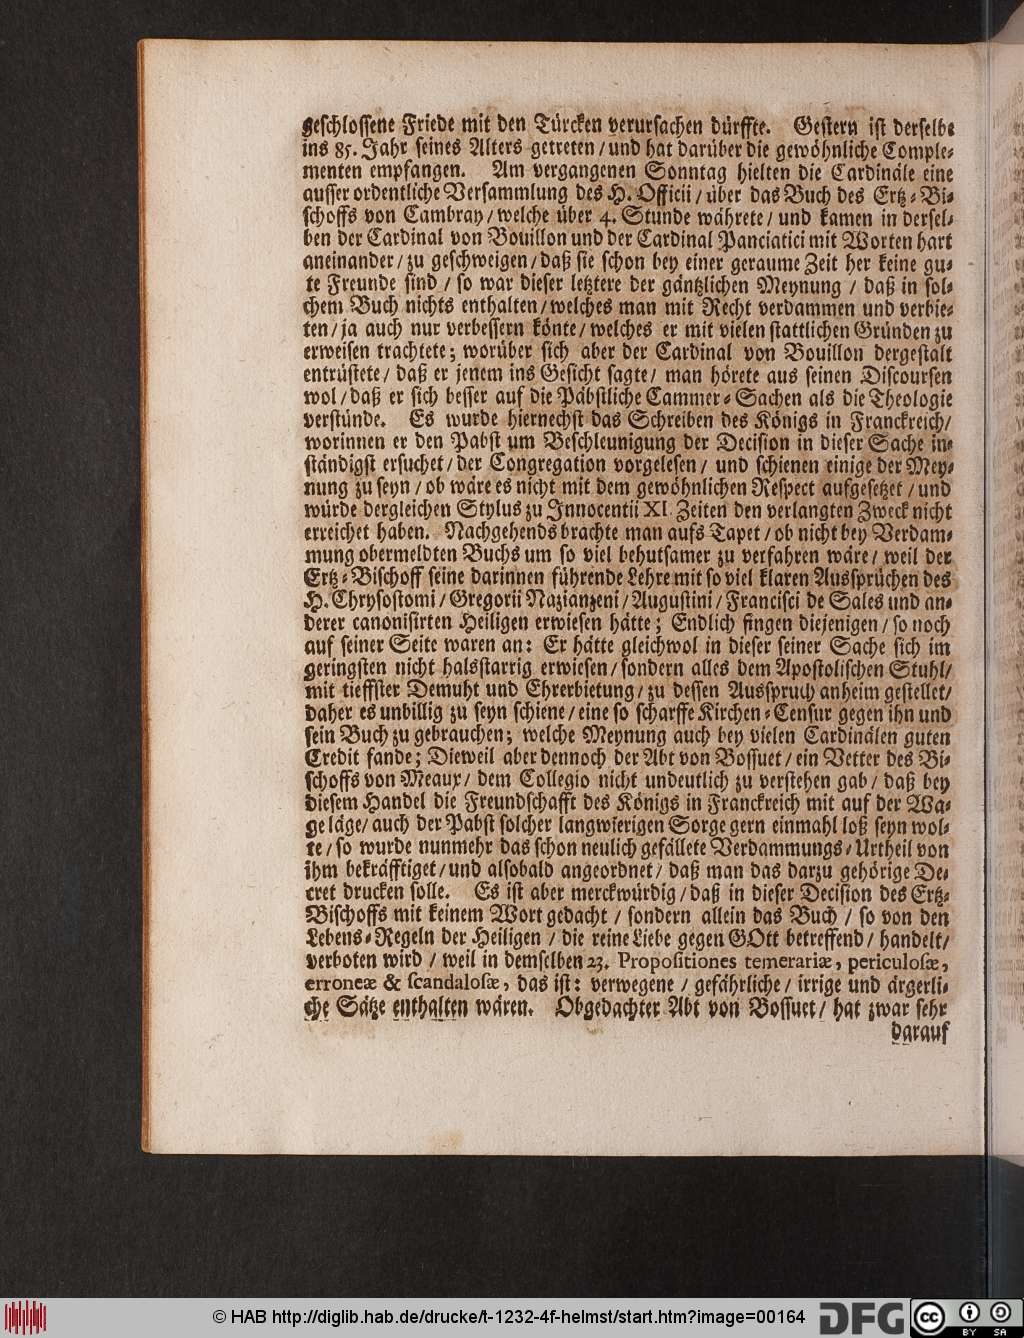 geschlossene Friede mit den Türcken verursachen dürffte. Gestern ist derselbe
ins 85. Jahr seines Alters getreten / und hat darüber die gewöhnliche Comple-
menten empfangen. Am vergangenen Sonntag hielten die Cardinäle eine
ausser ordentliche Versammlung des H. Officii / über das Buch des Ertz-Bi-
schoffs von Cambray / welche über 4. Stunde währete / und kamen in dersel-
ben der Cardinal von Bouillon und der Cardinal Panciatici mit Worten hart
aneinander / zu geschweigen / daß sie schon bey einer geraume Zeit her keine gu-
te Freunde sind / so war dieser letztere der gäntzlichen Meynung / daß in sol-
chem Buch nichts enthalten / welches man mit Recht verdammen und verbie-
ten / ja auch nur verbessern könte / welches er mit vielen stattlichen Gründen zu
erweisen trachtete; worüber sich aber der Cardinal von Bouillon dergestalt
entrüstete / daß er jenem ins Gesicht sagte / man hörete aus seinen Discoursen
wol / daß er sich besser auf die Päbstliche Cammer-Sachen als die Theologie
verstünde. Es wurde hiernechst das Schreiben des Königs in Franckreich /
worinnen er den Pabst um Beschleunigung der Decision in dieser Sache in-
ständigst ersuchet / der Congregation vorgelesen / und schienen einige der Mey-
nung zu seyn / ob wäre es nicht mit dem gewöhnlichen Respect aufgesetzet / und
würde dergleichen Stylus zu Innocentii XI. Zeiten den verlangten Zweck nicht
erreichet haben. Nachgehends brachte man aufs Tapet / ob nicht bey Verdam-
mung obermeldten Buchs um so viel behutsamer zu verfahren wäre / weil der
Ertz-Bischoff seine darinnen führende Lehre mit so viel klaren Aussprüchen des
H. Chrysostomi / Gregorii Nazianzeni / Augustini / Francisci de Sales und an-
derer canonisirten Heiligen erwiesen hätte; Endlich fingen diejenigen / so noch
auf seiner Seite waren an: Er hätte gleichwol in dieser seiner Sache sich im
geringsten nicht halsstarrig erwiesen / sondern alles dem Apostolischen Stuhl /
mit tieffster Demuht und Ehrerbietung / zu dessen Ausspruch anheim gestellet /
daher es unbillig zu seyn schiene / eine so scharffe Kirchen-Censur gegen ihn und
sein Buch zu gebrauchen; welche Meynung auch bey vielen Cardinälen guten
Credit fande; Dieweil aber dennoch der Abt von Bossuet / ein Vetter des Bi-
schoffs von Meaux / dem Collegio nicht undeutlich zu verstehen gab / daß bey
diesem Handel die Freundschafft des Königs in Franckreich mit auf der Wa-
ge läge / auch der Pabst solcher langwierigen Sorge gern einmahl loß seyn wol-
te / so wurde nunmehr das schon neulich gefällete Verdammungs-Urtheil von
ihm bekräfftiget / und alsobald angeordnet / daß man das darzu gehörige De-
cret drucken solle. Es ist aber merckwürdig / daß in dieser Decision des Ertz-
Bischoffs mit keinem Wort gedacht / sondern allein das Buch / so von den
Lebens-Regeln der Heiligen / die reine Liebe gegen GOtt betreffend / handelt /
verboten wird / weil in demselben 23. Propositiones temerariæ, periculosæ,
erroneæ & scandalosæ, das ist: verwegene / gefährliche / irrige und ärgerli-
che Sätze enthalten wären. Obgedachter Abt von Bossuet / hat zwar sehr
darauf
© HAB http://diglib.hab.de/drucke/t-1232-4f-helmst/start.htm?image=00164
DFG
cc BY SA